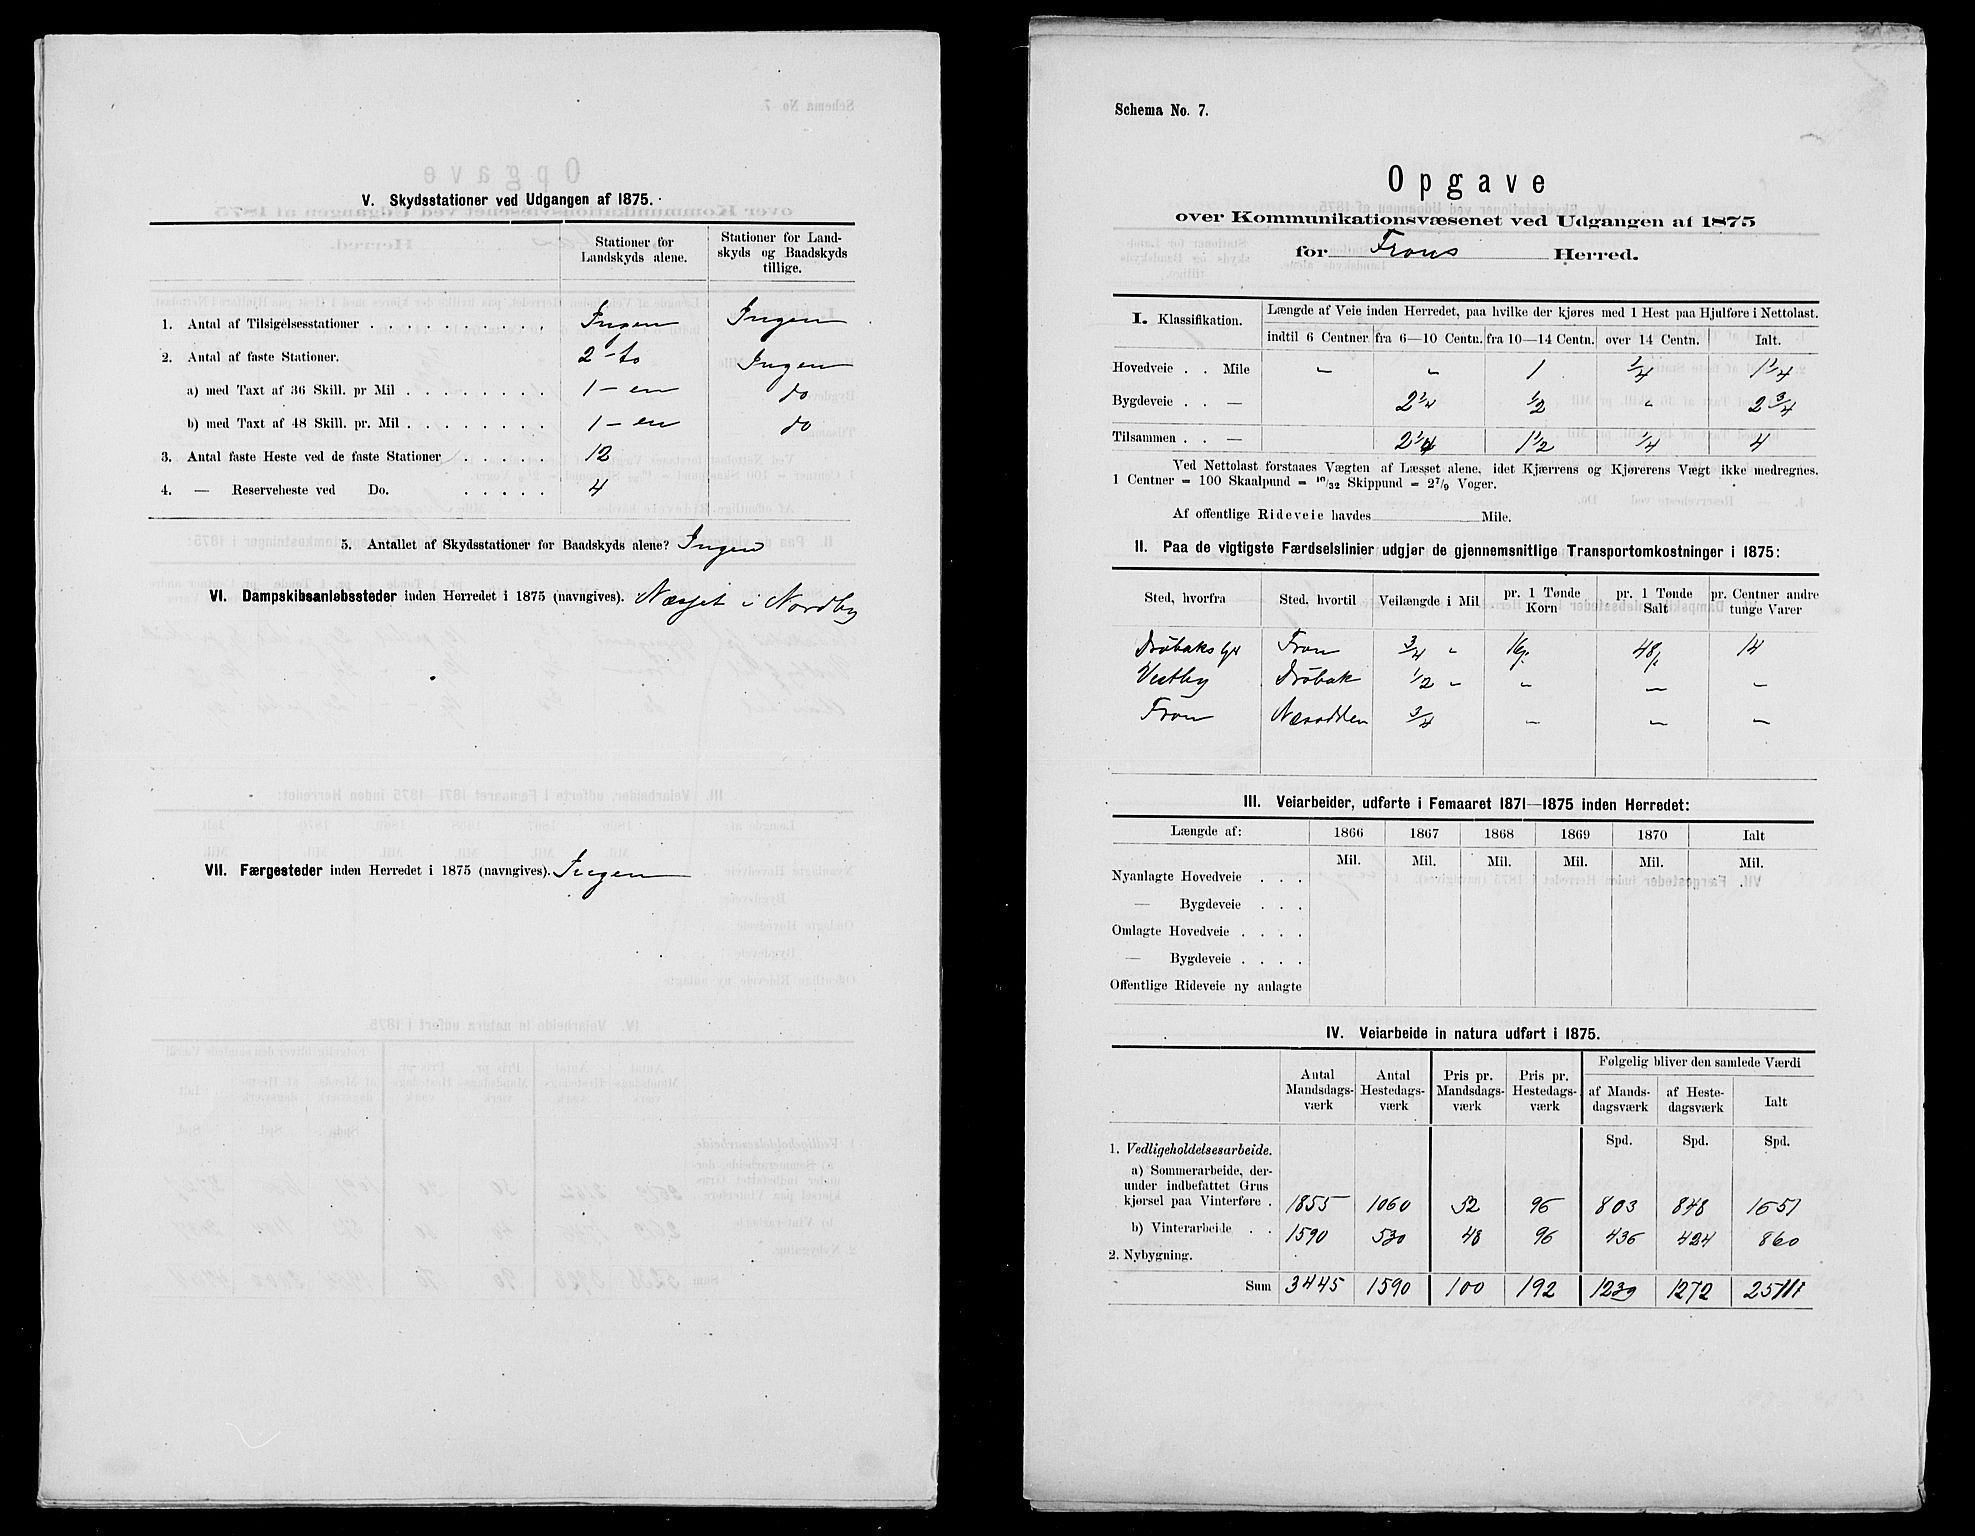 V. Skydsstationer ved Udgangen af 1875.
Stationer for Landskyds alene.
Stationer for Landskyds og Baadskyds tillige.
1. Antal af Tilsigelsesstationer . . . . . . . . . . Ingen Ingen
2. Antal af faste Stationer. 2 - to Ingen
a) med Taxt af 36 Skill. pr Mil . . . . . . . . 1 - en do
b) med Taxt af 48 Skill. pr. Mil . . . . . . . . 1 - en do
3. Antal faste Heste ved de faste Stationer . . . . . 12
4. — Reserveheste ved Do. . . . . . 4
5. Antallet af Skydsstationer for Baadskyds alene? Ingen
VI. Dampskibsanløbssteder inden Herredet i 1875 (navngives). Næsset i Nordby
VII. Færgesteder inden Herredet i 1875 (navngives). Ingen
Schema No. 7.
Opgave
over Kommunikationsvæsenet ved Udgangen af 1875
for Frons Herred.
I. Klassifikation. Længde af Veie inden Herredet, paa hvilke der kjøres med 1 Hest paa Hjulføre i Nettolast.
indtil 6 Centner. fra 6—10 Centn. fra 10—14 Centn. over 14 Centn. Ialt.
Hovedveie . . Mile " " 1 1/4 1 1/4
Bygdeveie . . — 2 1/4 1/2 " 2 3/4
Tilsammen . . — 2 1/4 1 1/2 1/4 4
Ved Nettolast forstaaes Vægten af Læsset alene, idet Kjærrens og Kjørerens Vægt ikke medregnes.
1 Centner = 100 Skaalpund = 10/32 Skippund = 2 7/9 Voger.
Af offentlige Rideveie havdes Mile.
II. Paa de vigtigste Færdselslinier udgjør de gjennemsnitlige Transportomkostninger i 1875:
Sted, hvorfra Sted, hvortil Veilængde i Mil pr. 1 Tønde Korn pr. 1 Tønde Salt pr. Centner andre tunge Varer
Drøbaks Fron 3/4 " 48 14
Vestby Drøbak 1/2 " " " "
Fron Næsodden 3/4 " " "
III. Veiarbeider, udførte i Femaaret 1871—1875 inden Herredet:
Længde af: 1866 1867 1868 1869 1870 Ialt
Mil. Mil. Mil. Mil. Mil. Mil.
Nyanlagte Hovedveie . . .
— Bygdeveie . . .
Omlagte Hovedveie . . . .
— Bygdeveie . . . .
Offentlige Rideveie ny anlagte
IV. Veiarbeide in natura udført i 1875.
Antal Mandsdagsværk Antal Hestedagsværk Pris pr. Mandsdagsværk Pris pr. Hestedagsværk Følgelig bliver den samlede Værdi
af Mandsdagsværk af Hestedagsværk Ialt
Spd. Spd. Spd.
1. Vedligeholdelsesarbeide.
a) Sommerarbeide, derunder indbefattet Gruskjørsel paa Vinterføre . 1855 1060 52 96 803 848 1651
b) Vinterarbeide . . 1590 530 48 96 436 424 860
2. Nybygning.
Sum 3445 1590 100 192 1239 1272 2511